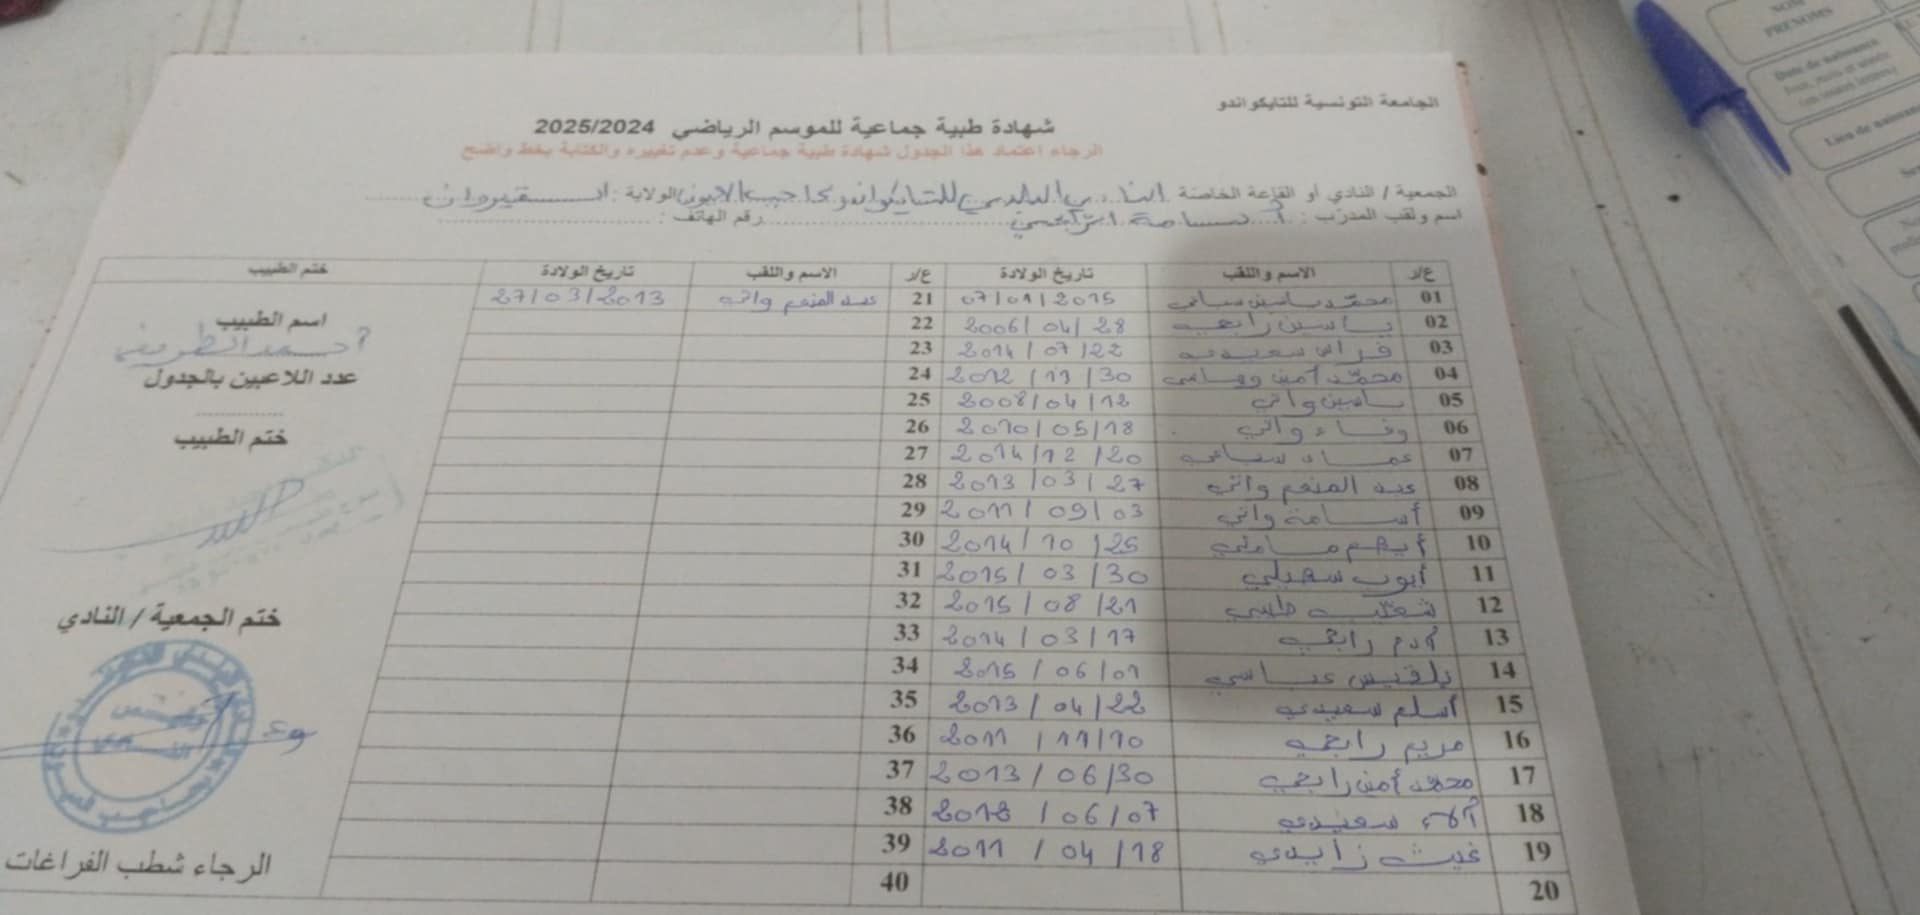 الجامعة التونسية للتايكواندو
شهادة طبية جماعية للموسم الرياضي 2025/2024
الرجاء اعتماد هذا الجدول شهادة طبية جماعية وعدم تغييره والكتابة بخط واضح
الجمعية / النادي أو القاعة الخاصة النادي البلدي للتايكواندو بحاجب العيون الولاية : القيروان
اسم ولقب المدرب : أسامة الرابحي رقم الهاتف :
ع/ر الاسم واللقب تاريخ الولادة ع/ر الاسم واللقب تاريخ الولادة ختم الطبيب
01 محمد ياسين سباعي 07/01/2015 21 عبد المنعم واني 27/03/2013
02 ياسين رابحي 2006/04/28 22
03 فراس سعيدي 2014/07/22 23
04 محمد أمين 2012/11/30 24
05 ياسين واني 2008/04/12 25
06 وفاء واني 2010/05/18 26
07 عماد سباعي 2014/12/20 27
08 عبد المنعم واني 2013/03/27 28
09 أسامة واني 2011/09/03 29
10 أيهم 2014/10/25 30
11 أيوب سهيلي 2015/03/30 31
12 2015/08/21 32
13 آدم رابحي 2014/03/17 33
14 بلقيس عباسي 2015/06/01 34
15 أسلم سعيدي 2013/04/22 35
16 مريم رابحي 2011/11/10 36
17 محمد أمين رابحي 2013/06/30 37
18 آلاء سعيدي 2012/06/07 38
19 غيث زايدي 2011/04/18 39
20 40
اسم الطبيب
أحمد الطريفي
عدد اللاعبين بالجدول
ختم الطبيب
ختم الجمعية / النادي
الرجاء شطب الفراغات
NOM
PRENOMS
Date de naissance